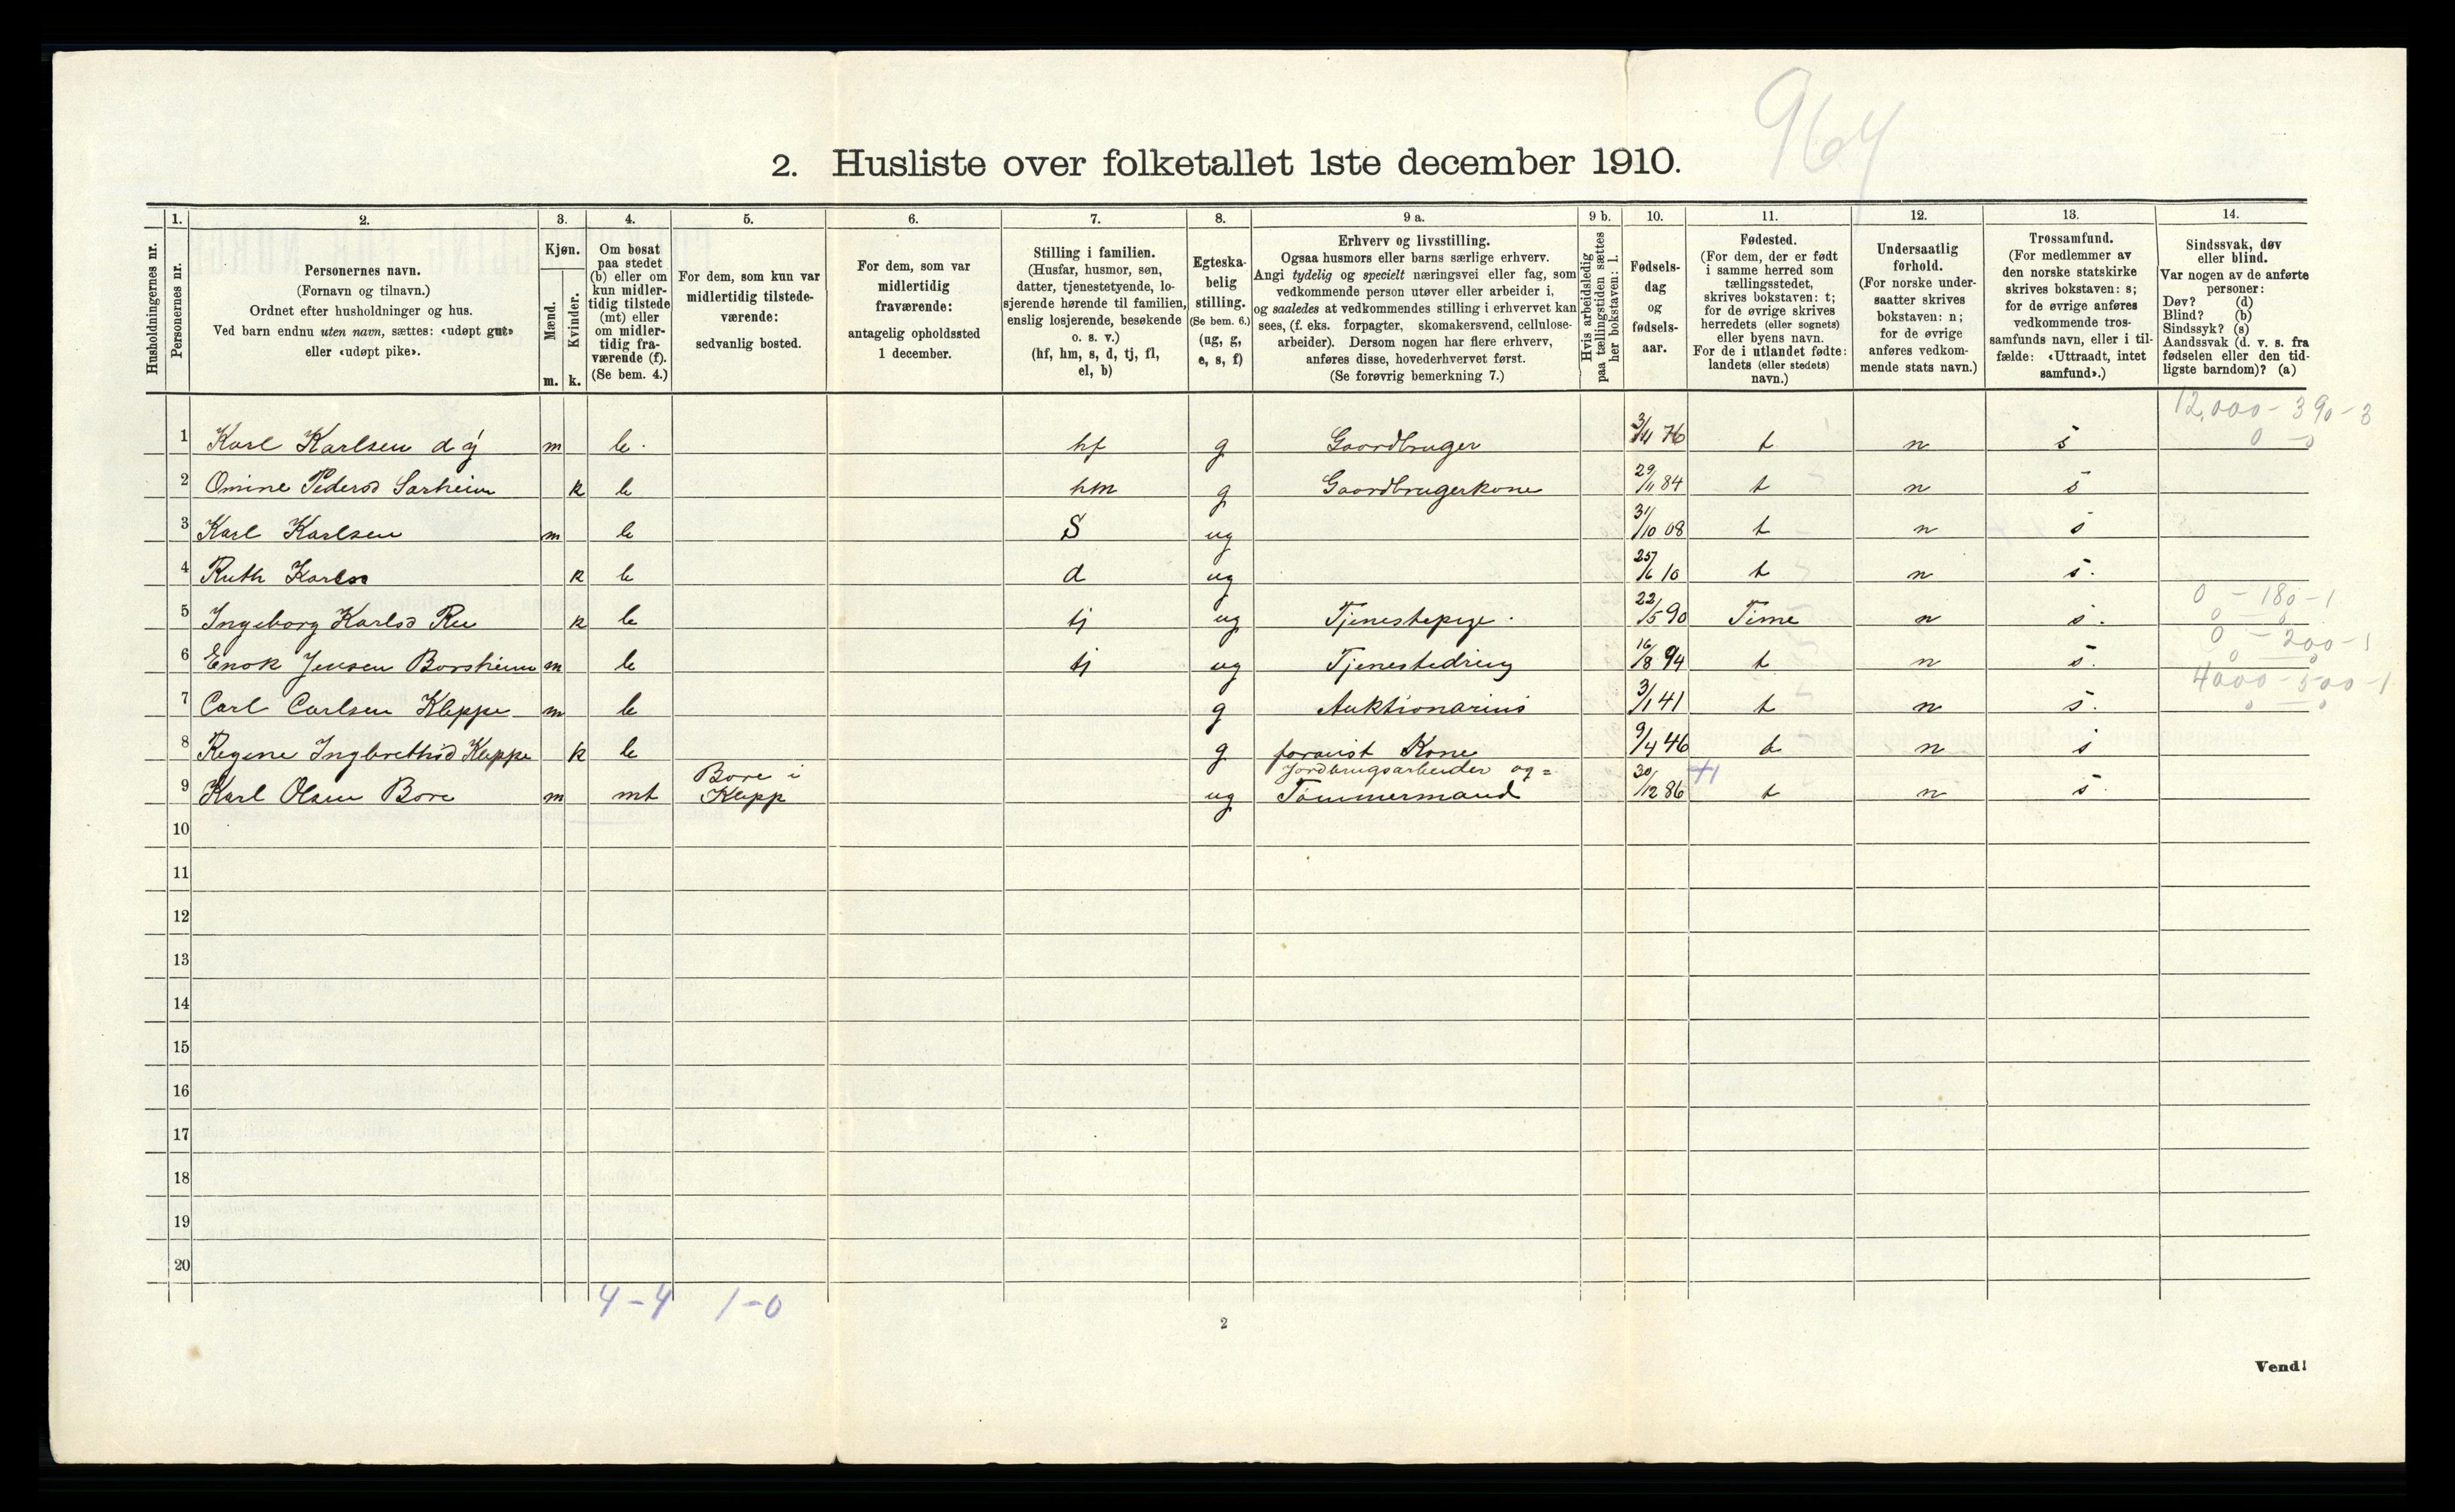 964
2. Husliste over folketallet 1ste december 1910.
Husholdningernes nr.
1. Personernes nr.
2. Personernes navn.
(Fornavn og tilnavn.)
Ordnet efter husholdninger og hus.
Ved barn endnu uten navn, sættes: «udøpt gut»
eller «udøpt pike».
3. Kjøn.
Mænd. m.
Kvinder. k.
4. Om bosat
paa stedet
(b) eller om
kun midler-
tidig tilstede
(mt) eller
om midler-
tidig fra-
værende (f).
(Se bem. 4.)
5. For dem, som kun var
midlertidig tilstede-
værende:
sedvanlig bosted.
6. For dem, som var
midlertidig
fraværende:
antagelig opholdssted
1 december.
7. Stilling i familien.
(Husfar, husmor, søn,
datter, tjenestetyende, lo-
sjerende hørende til familien,
enslig losjerende, besøkende
o. s. v.)
(hf, hm, s, d, tj, fl,
el, b)
8. Egteska-
belig
stilling.
(Se bem. 6.)
(ug, g,
e, s, f)
9 a. Erhverv og livsstilling.
Ogsaa husmors eller barns særlige erhverv.
Angi tydelig og specielt næringsvei eller fag, som
vedkommende person utøver eller arbeider i,
og saaledes at vedkommendes stilling i erhvervet kan
sees, (f. eks. forpagter, skomakersvend, cellulose-
arbeider). Dersom nogen har flere erhverv,
anføres disse, hovederhvervet først.
(Se forøvrig bemerkning 7.)
9 b. Hvis arbeidsledig
paa tællingstiden sættes
her bokstaven: l.
10. Fødsels-
dag
og
fødsels-
aar.
11. Fødested.
(For dem, der er født
i samme herred som
tællingsstedet,
skrives bokstaven: t;
for de øvrige skrives
herredets (eller sognets)
eller byens navn.
For de i utlandet fødte:
landets (eller stedets)
navn.)
12. Undersaatlig
forhold.
(For norske under-
saatter skrives
bokstaven: n;
for de øvrige
anføres vedkom-
mende stats navn.)
13. Trossamfund.
(For medlemmer av
den norske statskirke
skrives bokstaven: s;
for de øvrige anføres
vedkommende tros-
samfunds navn, eller i til-
fælde: «Uttraadt, intet
samfund».)
14. Sindssvak, døv
eller blind.
Var nogen av de anførte
personer:
Døv? (d)
Blind? (b)
Sindssyk? (s)
Aandssvak (d. v. s. fra
fødselen eller den tid-
ligste barndom)? (a)
12,000 - 390 - 3
1 Karl Karlsen d y m b. hf g Gaardbruger 3/11 76 t n s 0 - 0
2 Omine Pedersd Sarheim k b hm g Gaardbrugerkone 29/11 84 t n s
3 Karl Karlsen m b S ug 31/10 08 t n s
4 Ruth Karlsd k b d ug 25/6 10 t n s.
0 - 180 - 1
5 Ingeborg Karlsd Ree k b tj ug Tjenestepige. 22/5 90 Time n s. 0 - 0
0 - 200 - 1
6 Enok Jensen Borsheim m b tj ug Tjenestedreng 16/8 94 t n s. 0 - 0
4000 - 500 - 1
7 Carl Carlsen Kleppe m b g Auktionarius 3/1 41 t n s. 0 - 0
8 Regine Ingbrethsd Kleppe k b g foranst Kone 9/4 46 t n s
Bore i Jordbrugsarbeider og =
9 Karl Olsen Bore m mt Klepp ug Tømmermand 30/12 86 t n s.
10
11
12
13
14
15
16
17
18
19
20
4 - 4 1 - 0
2
Vend!